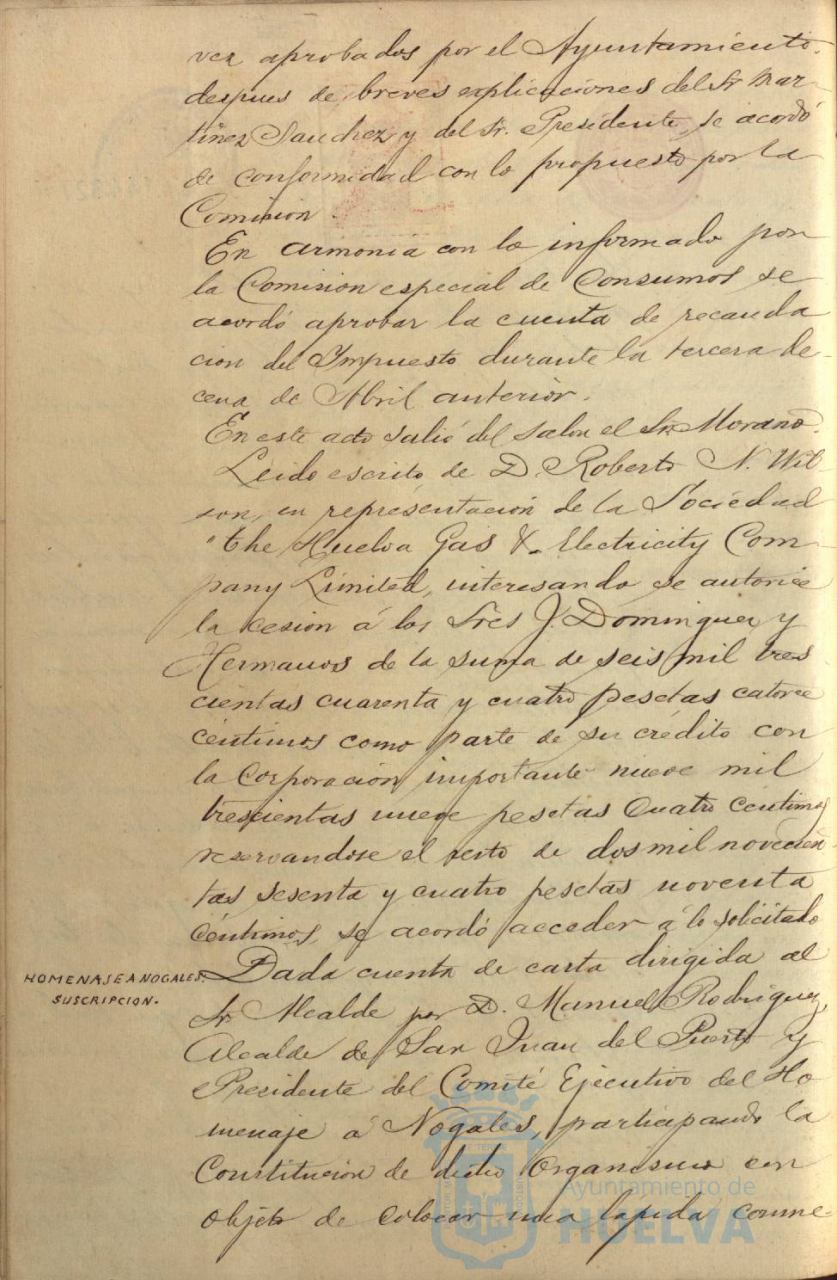 vez aprobados por el Ayuntamiento.
despues de breves explicaciones del Sr Mar-
tinez Sanchez y del Sr. Presidente, se acordó
de conformidad con lo propuesto por la
Comision.
En armonia con lo informado por
la Comision especial de Consumos se
acordó aprobar la cuenta de recauda
cion del Impuesto durante la tercera de-
cena de Abril anterior.
En este acto salió del salon el Sr. Morano.
Leido escrito de D. Roberto N. Wil
son, en representacion de la Sociedad
"The Huelva Gas & Electricity Com-
pany Limited, interesando se autorice
la cesion á los Sres J. Dominguez y
Hermanos de la suma de seis mil tres
cientas cuarenta y cuatro pesetas catorce
céntimos como parte de su crédito con
la Corporación importante nueve mil
trescientas nueve pesetas cuatro céntimos
reservandose el resto de dos mil novecien
tas sesenta y cuatro pesetas noventa
céntimos, se acordó acceder á lo solicitado
HOMENAJE A NOGALES.
SUSCRIPCION.
Dada cuenta de carta dirigida al
Sr Alcalde por D. Manuel Rodriguez,
Alcalde de San Juan del Puerto y
Presidente del Comité Ejecutivo del Ho
menaje á Nogales, participando la
Constitucion de dicho Organismo con
objeto de colocar una lapida conme-
Ayuntamiento de
HUELVA